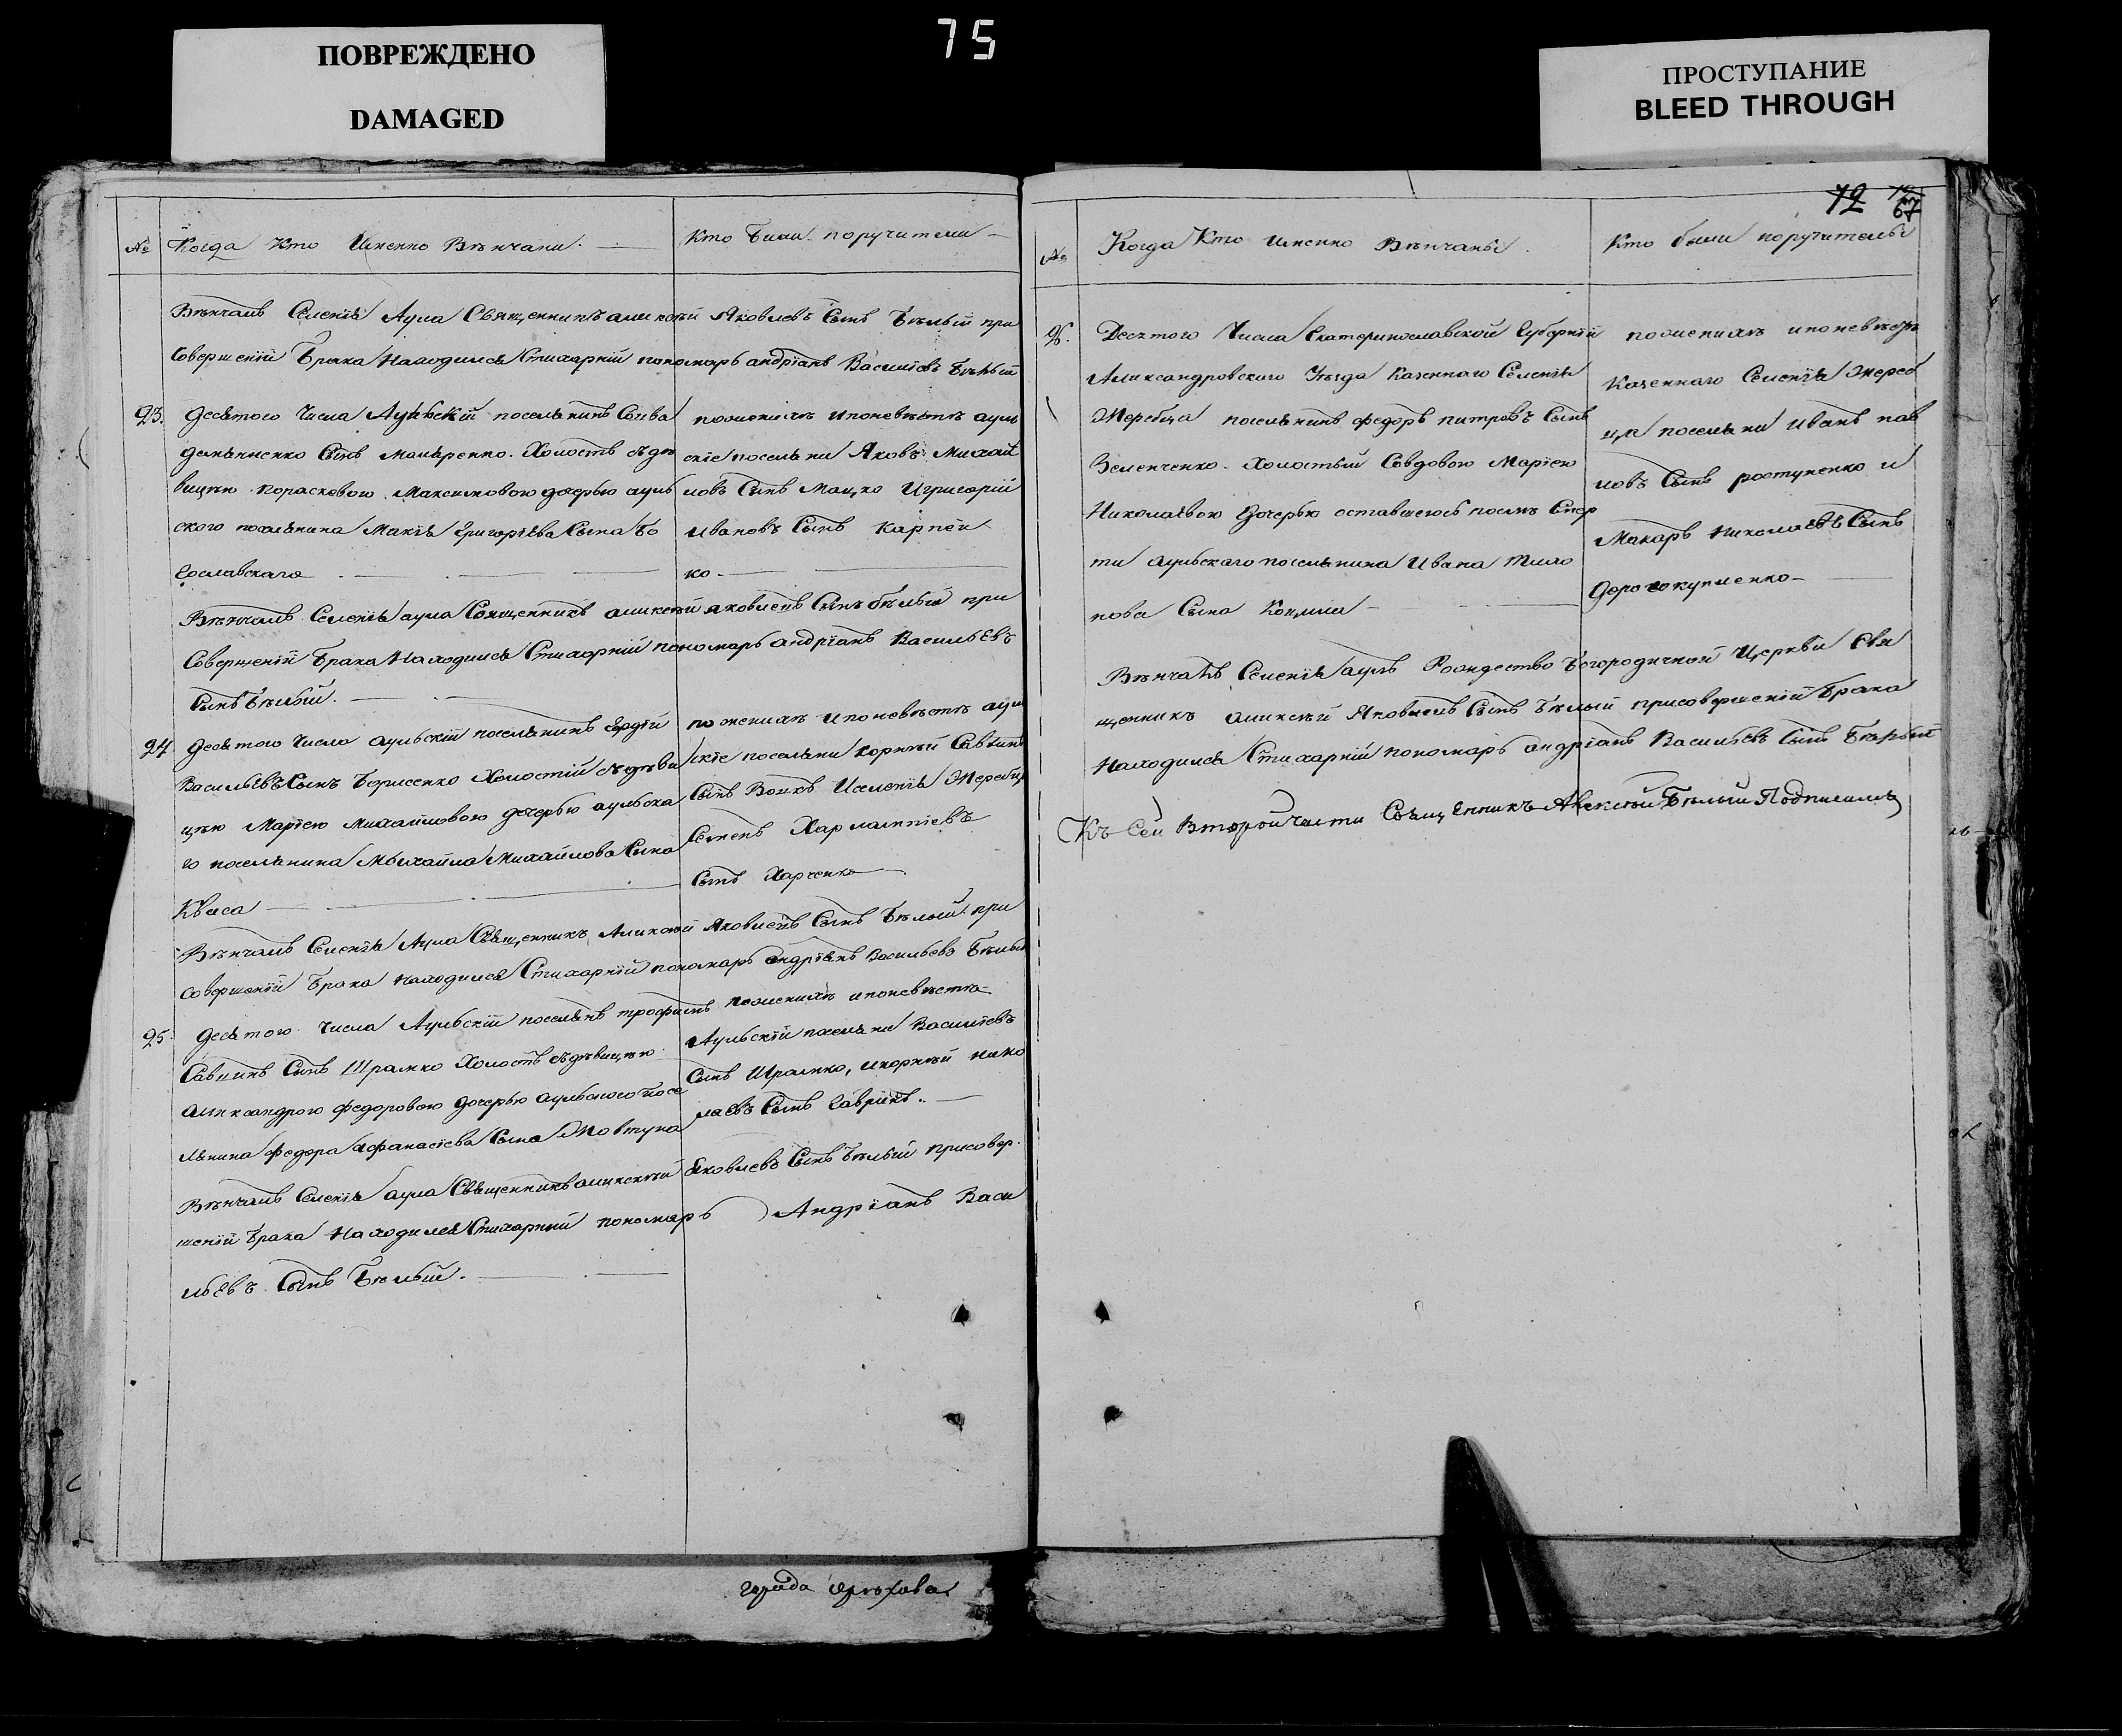 75
ПОВРЕЖДЕНО
DAMAGED
ПРОСТУПАНИЕ
BLEED THROUGH
№ Когда Кто Именно Вѣнчани. Кто Били поручители
Вѣнчалъ Селенія Аула Священникъ Аликсѣй Яковлевъ Сынъ Бѣлый при
Совершеніи Брака Находился Стихарній пономарь андріанъ Василіевъ Бѣлый
23. Десятого Числа Аульскій поселянинъ Сава
демяненко Сынъ Холостъ съдѣ
вицѣю Парасковою Максимовою дочерью ауль
ского поселянина Григоріева Сына Бо
гославскаго
пожениху и поневѣстѣ ауль
скіе поселяни Яковъ Михай
ловъ Сынъ Мацко Игригорій
Ивановъ Сынъ Карпен
ко
Вѣнчалъ Селенія аула Священникъ аликсѣй яковлевъ Сынъ бѣлый при
Совершеніи Брака Находился Стихарній пономарь андріанъ Васильевъ
Сынъ Бѣлый.
24. Десятого Числа аульскій поселянинъ
Васильевъ Сынъ Борисенко Холостій съ дѣви
цѣю Маріею Михайловою дочерью аульска
го поселянина Михайла Михайлова Сына
Кваса
по жениху и поневѣстѣ аул
скіе поселяни Корнѣй Саввинъ
Сынъ Вовкъ Иселенія Жеребца
Семенъ Харлампіевъ
Сынъ Харченко
Вѣнчалъ Селенія Аула Священникъ Аликсѣй Яковлевъ Сынъ Бѣлый при
Совершеніи Брака находился Стихарній пономарь Андріанъ Васильевъ Бѣлый
25. Десятого Числа Аульскій поселянъ трофимъ
Саввинъ Сынъ Шрамко Холостъ съдѣвицѣю
аликсандрою федоровою дочерью аульского посе
лянина федора Афанасіева Сына Жовтуна
пожениху и поневѣстѣ
Аульскій поселяни Василіевъ
Сынъ Шрамко, икорнѣй нико
лаевъ Сынъ
Вѣнчалъ Селенія аула Священникъ аликсѣй Яковлевъ Сынъ Бѣлый присовер
шеніи Брака Находился Стихарній пономарь Андріанъ Васи
льевъ Сынъ Бѣлый.
города орѣхова
72 67
№ Когда Кто именно Вѣнчаны. Кто были поручители
26. Десятого Числа Екатеринославской Губерніи
Александровского Уѣзда Казенного Селенія
Жеребца поселянинъ федоръ питровъ Сынъ
Зеленченко. Холостый Совдовою Маріею
Николаевою Дочерью оставшеюсь послѣ Смер
ти аульскаго поселянина Ивана
нова Сына
пожениху и поневѣстѣ
Казенного Селенія Жереб
ца поселяни Иванъ пав
ловъ Сынъ ростуненко и
Макаръ Николаевъ Сынъ
Дорогокупленко
Вѣнчалъ Селенія аулъ Рождество Богородичной Церкви Свя
щенникъ аликсѣй Яковлевъ Сынъ Бѣлый присовершеніи Брака
Находился Стихарній пономарь андріанъ Васильевъ Сынъ Бѣлый
Къ Сей Второй Части Священникъ Алексѣй Бѣлый Подписался